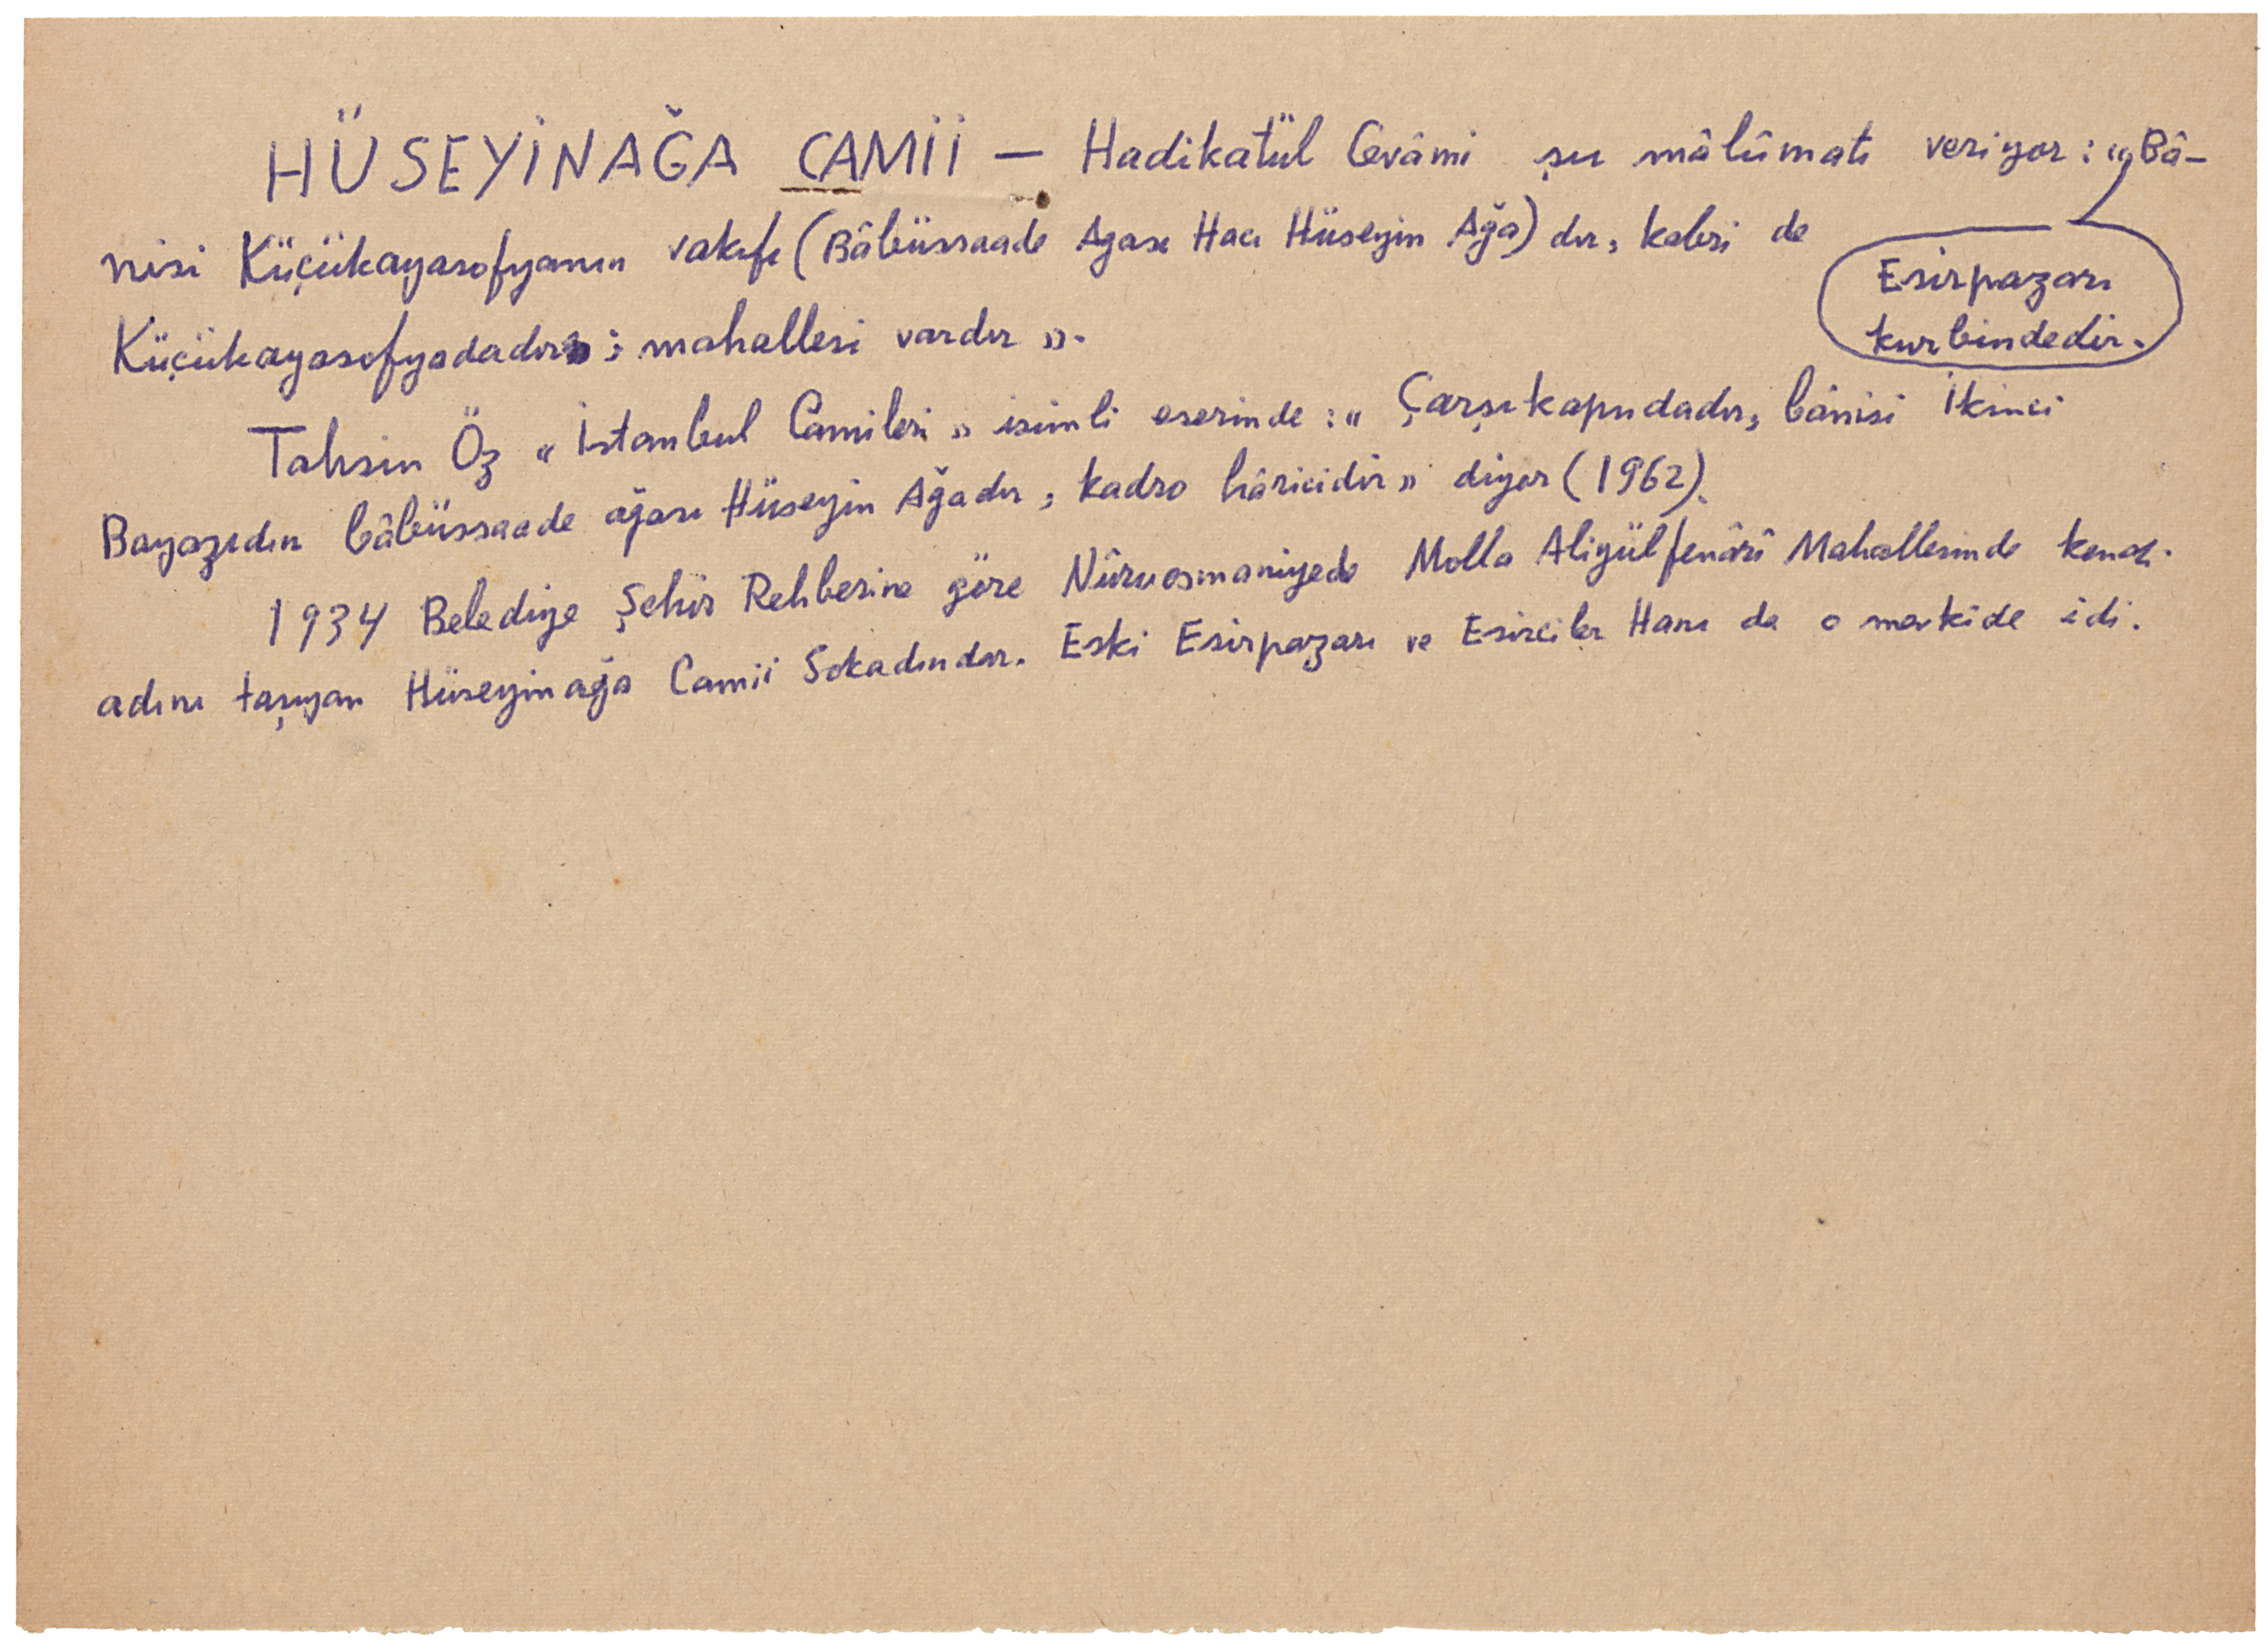 HÜSEYİNAĞA CAMİİ — Hadikatül Cevâmi şu mâlûmatı veriyor: « Bâ-
Esirpazarı
kurbindedir.
nisi Küçükayasofyanın vakıfı (Bâbüssaade Agası Hacı Hüseyin Ağa) dır, kabri de
Küçükayasofyadadır; mahallesi vardır ».
Tahsin Öz « İstanbul Camileri » isimli eserinde : « Çarşıkapudadır, bânisi İkinci
Bayazıdın bâbüssaade ağası Hüseyin Ağadır, kadro hâricidir » diyor (1962).
1934 Belediye Şehir Rehberine göre Nûruosmaniyede Molla Aliyülfenârî Mahallesinde kendi
adını taşıyan Hüseyinağa Camii Sokadındır. Eski Esirpazarı ve Esirciler Hanı da o mevkide idi.